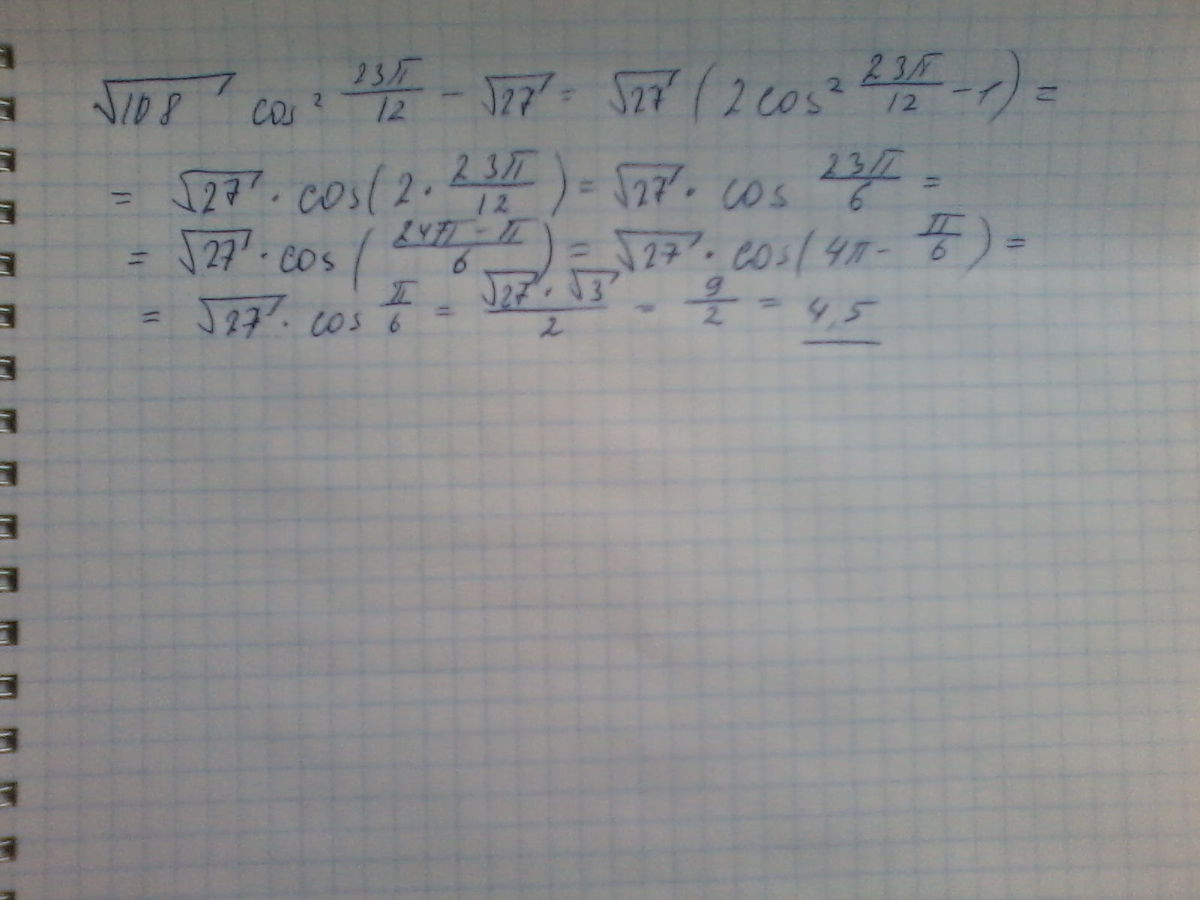 √108 cos² 23π/12 - √27 = √27 (2cos² 23π/12 - 1) =
= √27 · cos(2 · 23π/12) = √27 · cos 23π/6 =
= √27 · cos (24π - π/6) = √27 · cos(4π - π/6) =
= √27 · cos π/6 = √27 · √3/2 = 9/2 = 4,5